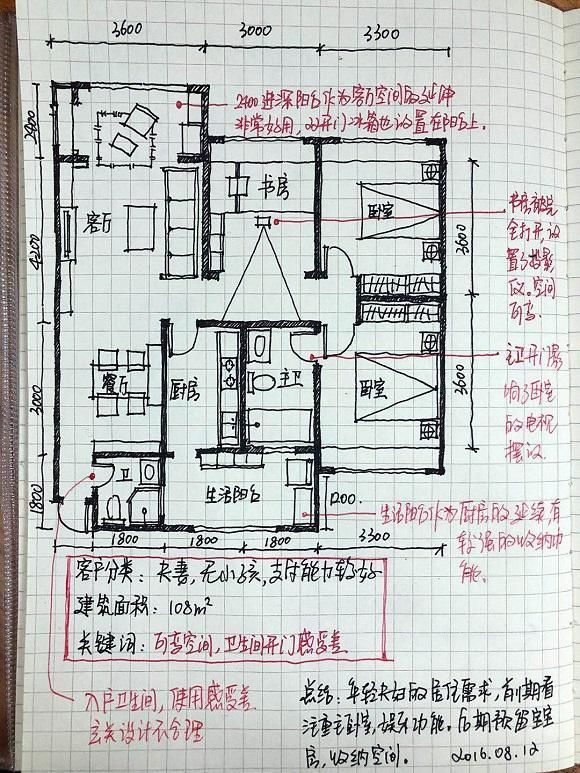 3600
3000
3300
2400
2400进深阳台作为客厅空间的延伸
非常好用,双开门冰箱也设置在阳台上.
书房
卧室
客厅
4200
3600
书房被完
全打开,设
置了投影
仪。空间
可变.
主卫开门影
响了卧室
的电视
摆设.
餐厅
厨房
主卫
卧室
3000
3600
卫
生活阳台
1800
1200
生活阳台作为厨房的延续,有
较强的收纳功
能.
1800
1800
1800
3300
客户分类:夫妻,无小孩,支付能力较好
建筑面积:108m²
关键词:可变空间,卫生间开门感受差
入户卫生间,使用感受差
玄关设计不合理
总结:年轻夫妇的居住需求,前期看
注重主卧室,娱乐功能.后期预留室室
房,收纳空间.
2016.08.12